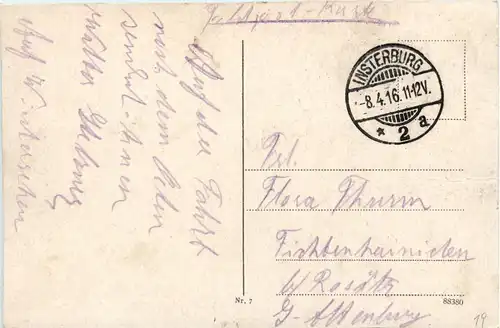 Feldpost-Karte
Auf der Fahrt
nach dem Osten
sendet Ihnen
Walter
Auf Wiedersehen
INSTERBURG
-8.4.16.11-12V.
* 2 a
Frl.
Flora Thurm
Fichtenhainichen
b/ Rositz
S. Altenburg
Nr. 7
88380
19